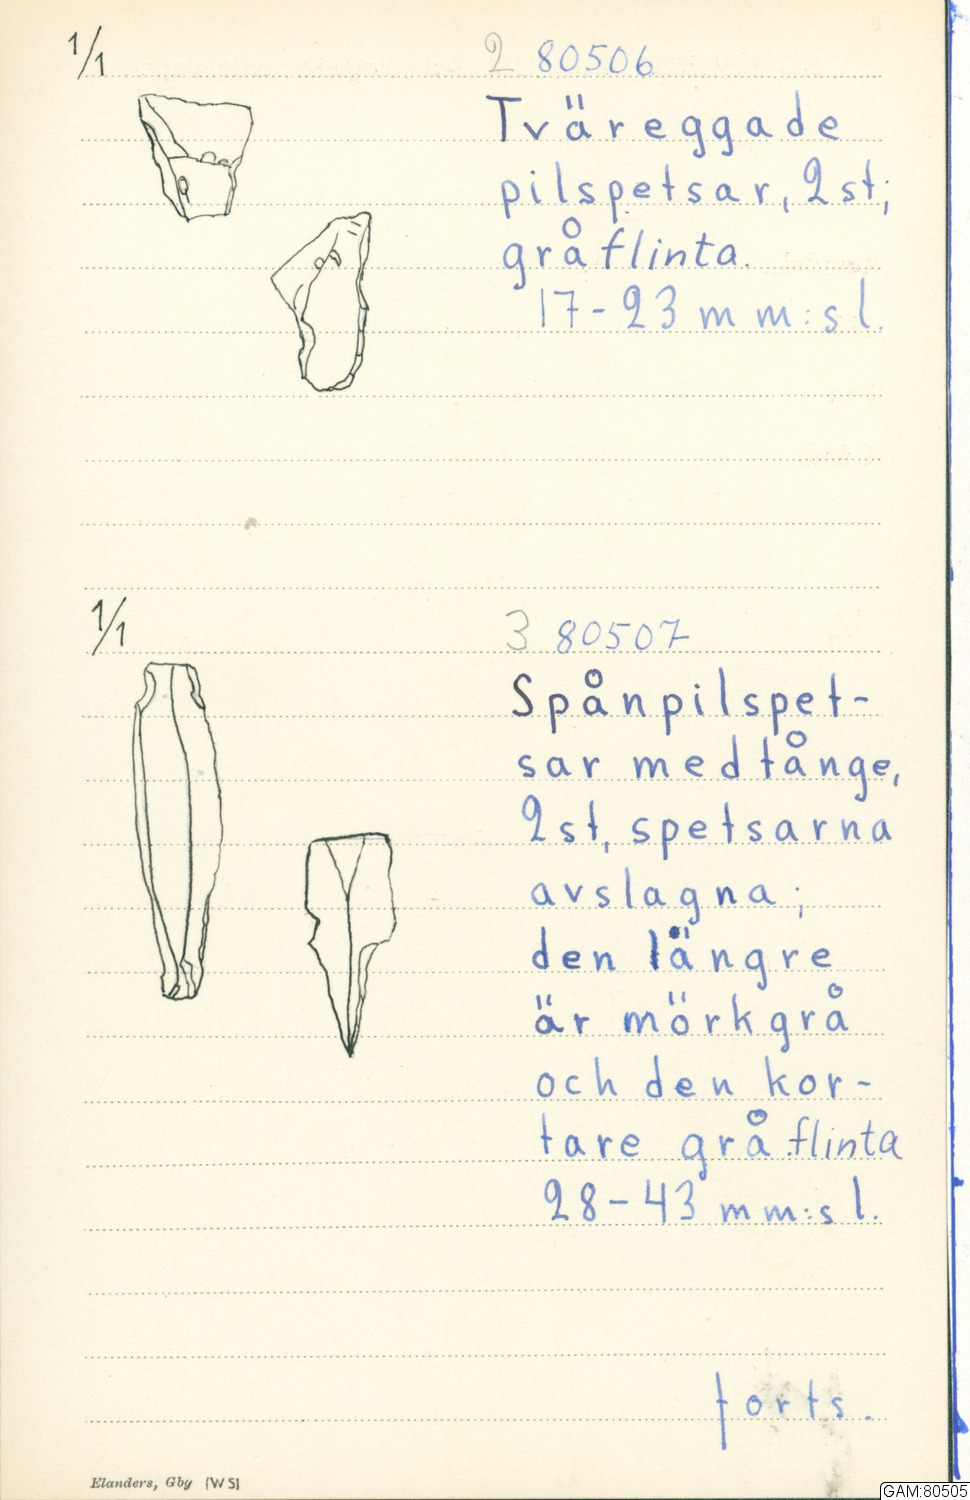 1/1
2 80506
Tväreggade
pilspetsar, 2st;
grå flinta.
17-23 mm:s l.
1/1
3 80507
Spånpilspet-
sar med tånge,
2st, spetsarna
avslagna;
den längre
är mörkgrå
och den kor-
tare grå flinta
28-43 mm:s l.
forts.
Elanders, Gby (WS)
GAM:80505